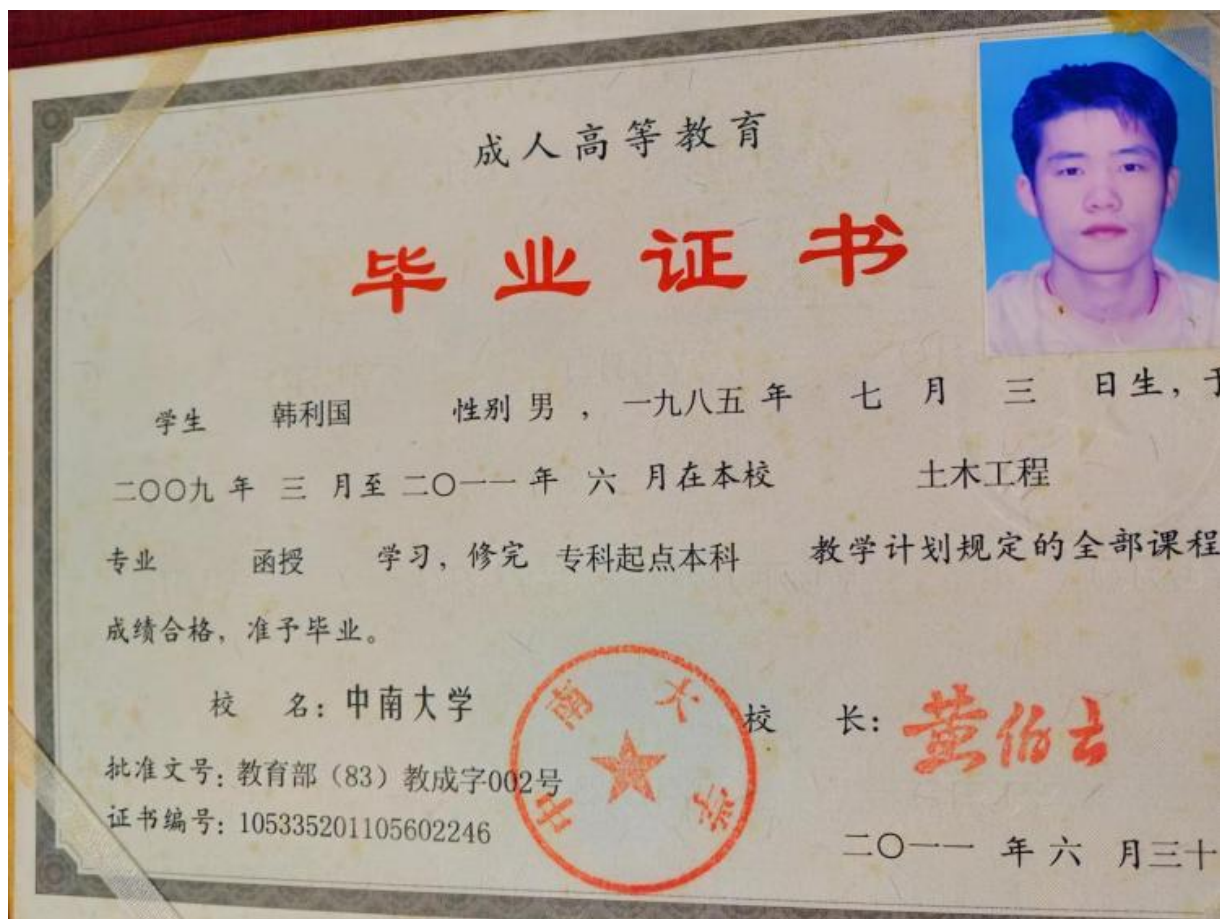 成人高等教育
毕业证书
学生 韩利国 性别 男 , 一九八五 年 七 月 三 日生, 于
二〇〇九 年 三 月至 二〇一一 年 六 月在本校 土木工程
专业 函授 学习, 修完 专科起点本科 教学计划规定的全部课程
成绩合格, 准予毕业。
校 名: 中南大学 校 长: 黄伯云
批准文号: 教育部（83）教成字002号
证书编号: 105335201105602246
二〇一一 年 六 月三十
中南大学